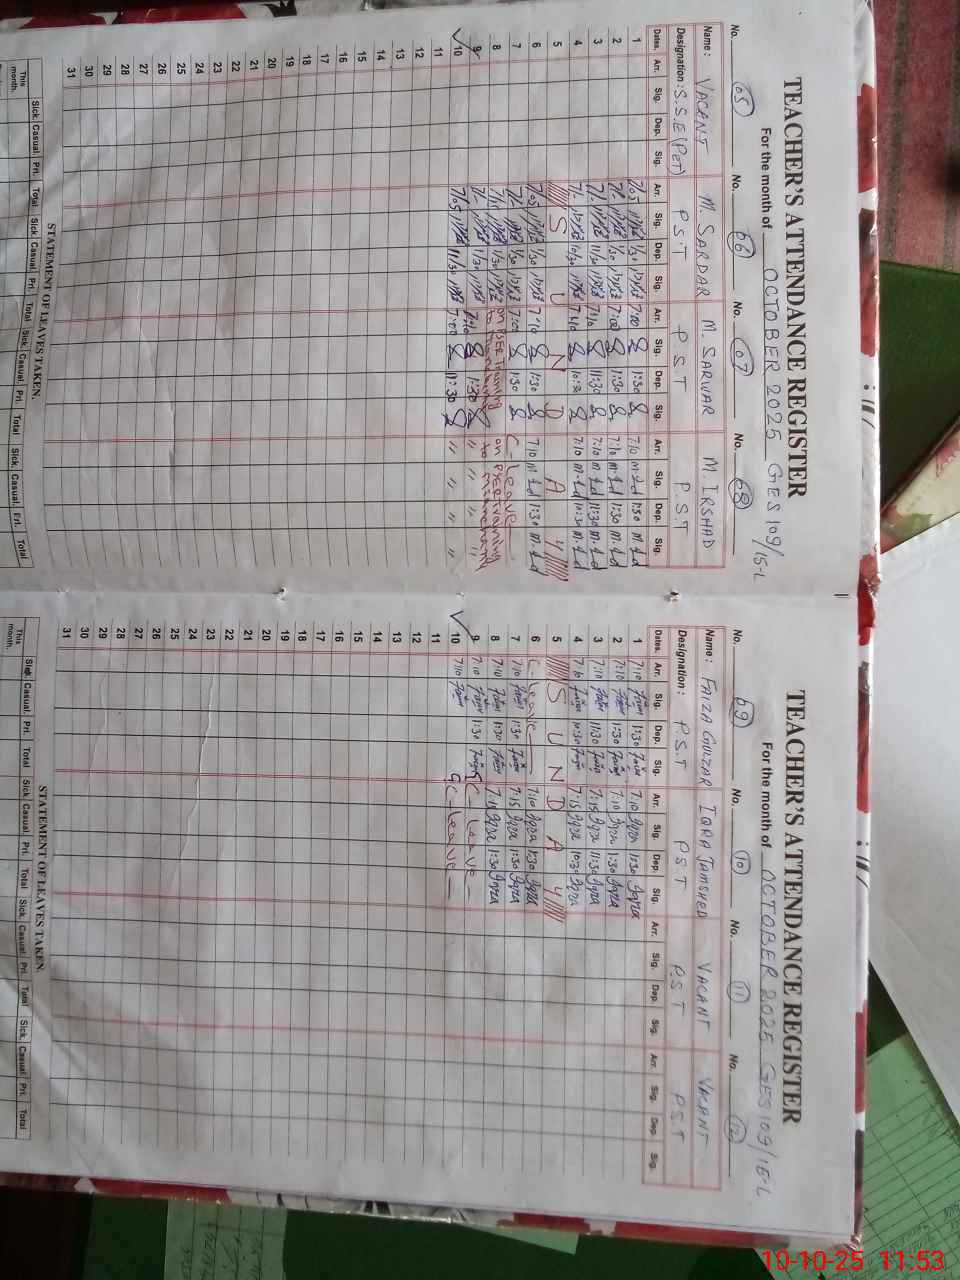 TEACHER'S ATTENDANCE REGISTER
For the month of OCTOBER 2025 GES 109/15-L
No. 05 No. 06 No. 07 No. 08
Name: VACANT M. SARDAR M. SARWAR M. IRSHAD
Designation: S.S.E (PET) P.S.T P.S.T P.S.T
Dates. Arr. Sig. Dep. Sig. Arr. Sig. Dep. Sig. Arr. Sig. Dep. Sig. Arr. Sig. Dep. Sig.
1 7:05 1/30 7:00 1:30 7:10 1:30
2 7/2 1/30 7:00 1:30 7:10 1:30
3 7/2 11/30 7:10 11:30 7:10 11:30
4 7/2 10/30 7:10 10:30 7:10 10:30
5 S U N D A Y
6 7:05 1/30 7:10 1:30 7:10 1:30
7 7/2 1/30 7:00 1:30 C-leave
8 1/30 on PSER Training on PSER Training
9 7/2 1/30 7:10 1:30 〃 〃
10 7:05 11/30 7:00 11:30 〃 〃 〃 〃
11
12
13
14
15
16
17
18
19
20
21
22
23
24
25
26
27
28
29
30
31
STATEMENT OF LEAVES TAKEN.
This month. Sick. Casual. Pri. Total Sick. Casual. Pri. Total Sick. Casual. Pri. Total Sick. Casual. Pri. Total
TEACHER'S ATTENDANCE REGISTER
For the month of OCTOBER 2025 GES 109/15-L
No. 09 No. 10 No. 11 No. 12
Name: FAIZA GULZAR IQRA JAMSHED VACANT VACANT
Designation: P.S.T P.S.T P.S.T P.S.T
Dates. Arr. Sig. Dep. Sig. Arr. Sig. Dep. Sig. Arr. Sig. Dep. Sig. Arr. Sig. Dep. Sig.
1 7:10 1:30 7:10 Iqra 1:30 Iqra
2 7:10 1:30 7:10 Iqra 1:30 Iqra
3 7:10 11:30 7:15 Iqra 11:30 Iqra
4 7:10 10:30 7:15 Iqra 10:30 Iqra
5 S U N D A Y
6 C leave 7:10 Iqra 1:30 Iqra
7 7:10 1:30 7:15 Iqra 1:30 Iqra
8 7:10 1:30 7:15 Iqra 1:30 Iqra
9 7:10 1:30 C-leave
10 7:10 C-leave
11
12
13
14
15
16
17
18
19
20
21
22
23
24
25
26
27
28
29
30
31
STATEMENT OF LEAVES TAKEN.
This month. Sick. Casual. Pri. Total Sick. Casual. Pri. Total Sick. Casual. Pri. Total Sick. Casual. Pri. Total
10-10-25 11:53